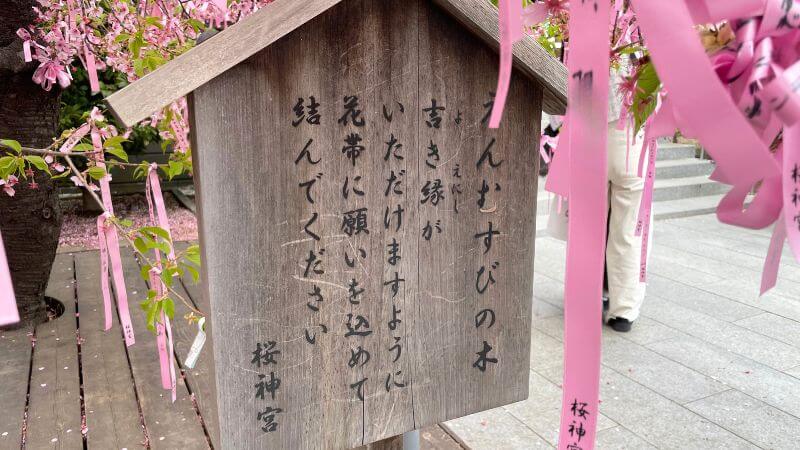 えんむすびの木
吉き縁が
よ えにし
いただけますように
花帯に願いを込めて
結んでください
桜神宮
桜神宮